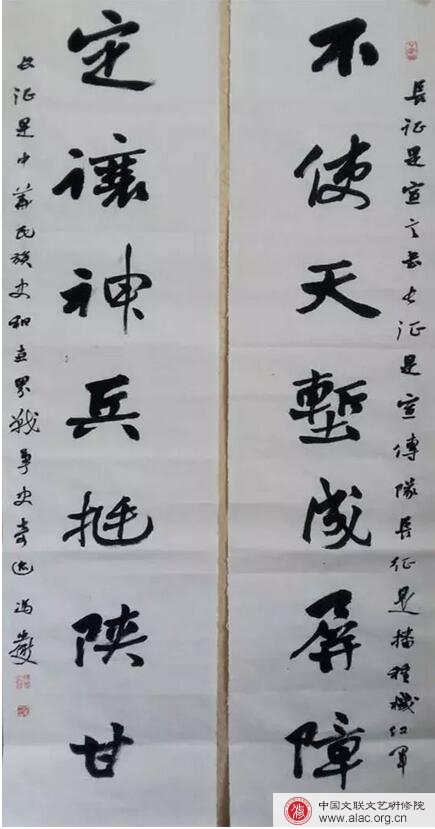 長征是宣言書长征是宣傳隊長征是播種機红軍
不使天塹成屏障
定讓神兵挺陝甘
长征是中華民族史和世界戰争史奇迹
中国文联文艺研修院
www.alac.org.cn